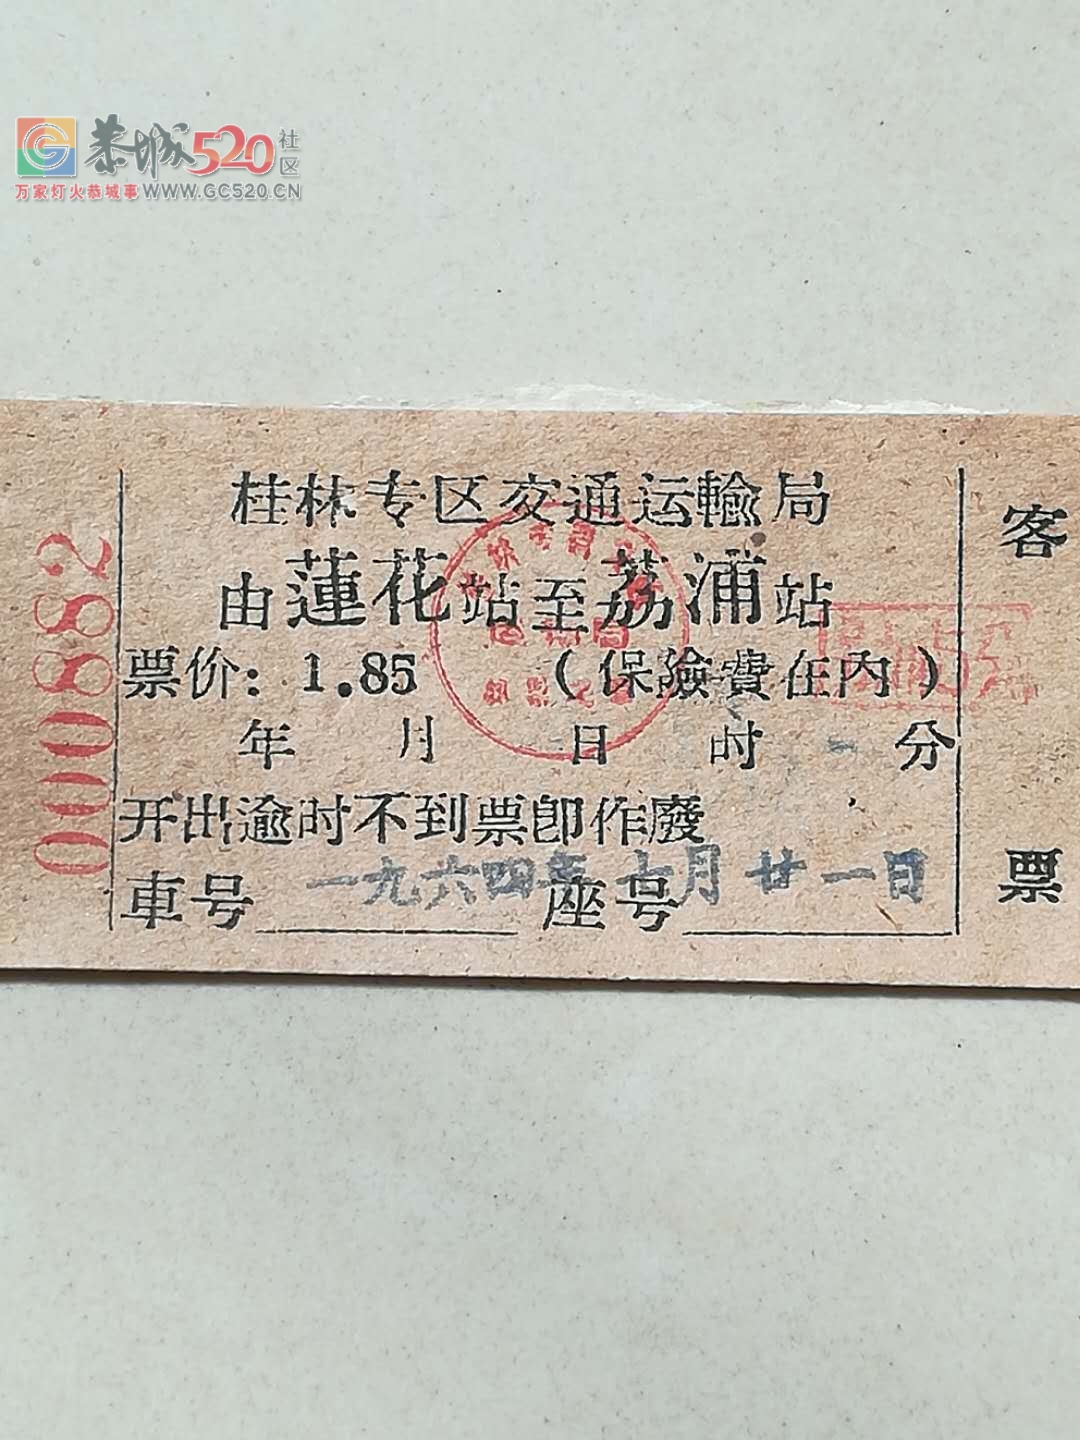 恭城520社区
万家灯火恭城事 WWW.GC520.CN
桂林专区交通运輸局
由蓮花站至荔浦站
票价：1.85 （保險費在內）
年 月 日 时 分
开出逾时不到票卽作廢
一九六四年 七月廿一日
車号 座号
000882
客票